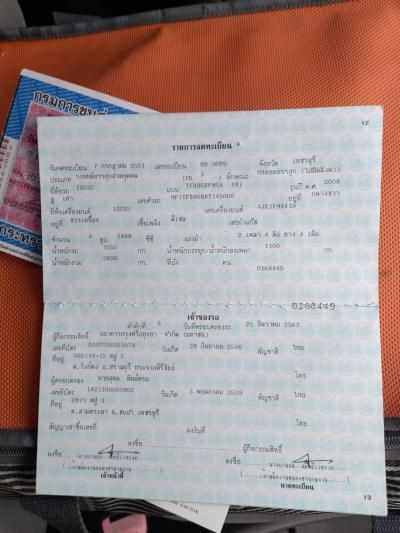 กรมการขนส่
12
รายการจดทะเบียน
วันจดทะเบียน 7 กรกฎาคม 2551 เลขทะเบียน บพ 3689 จังหวัด เพชรบุรี
ประเภท รถยนต์บรรทุกส่วนบุคคล (รย. 3 ) ลักษณะ กระบะบรรทุก (ไม่มีหลังคา)
ยี่ห้อรถ ISUZU แบบ รุ่นปี ค.ศ. 2008
สี เทา เลขตัวรถ MP1TFR86H8T145000 อยู่ที่ กลางขวา
ยี่ห้อเครื่องยนต์ ISUZU เลขเครื่องยนต์ 4JK1FM4419
อยู่ที่ ขวาเครื่อง เชื้อเพลิง ดีเซล เลขถังแก๊ส
จำนวน 4 สูบ 2499 ซีซี แรงม้า 2 เพลา 4 ล้อ ยาง 4 เส้น
น้ำหนักรถ 1550 กก. น้ำหนักบรรทุก/น้ำหนักลงเพลา 1100 กก.
น้ำหนักรวม 2650 กก. ที่นั่ง คน 0168445
0168445
เจ้าของรถ
ลำดับที่ 5 วันที่ครอบครองรถ 25 ธันวาคม 2563
ผู้ถือกรรมสิทธิ์ ธนาคารกรุงศรีอยุธยา จำกัด (มหาชน)
เลขที่บัตร 0107536001079 วันเกิด 28 กันยายน 2536 สัญชาติ ไทย
ที่อยู่ 502/14-15 หมู่ 2
ต.วังก์พง อ.ปราณบุรี ประจวบคีรีขันธ์ โทร.
ผู้ครอบครอง
เลขที่บัตร 1421300002802 วันเกิด 3 พฤษภาคม 2529 สัญชาติ ไทย
ที่อยู่ 28/1 หมู่ 3
ต.สามพระยา อ.ชะอำ เพชรบุรี โทร.
สัญญาเช่าซื้อเลขที่ ลงวันที่
ลงชื่อ ผู้ถือกรรมสิทธิ์
ลงชื่อ ลงชื่อ
เจ้าหน้าที่ นายทะเบียน
13